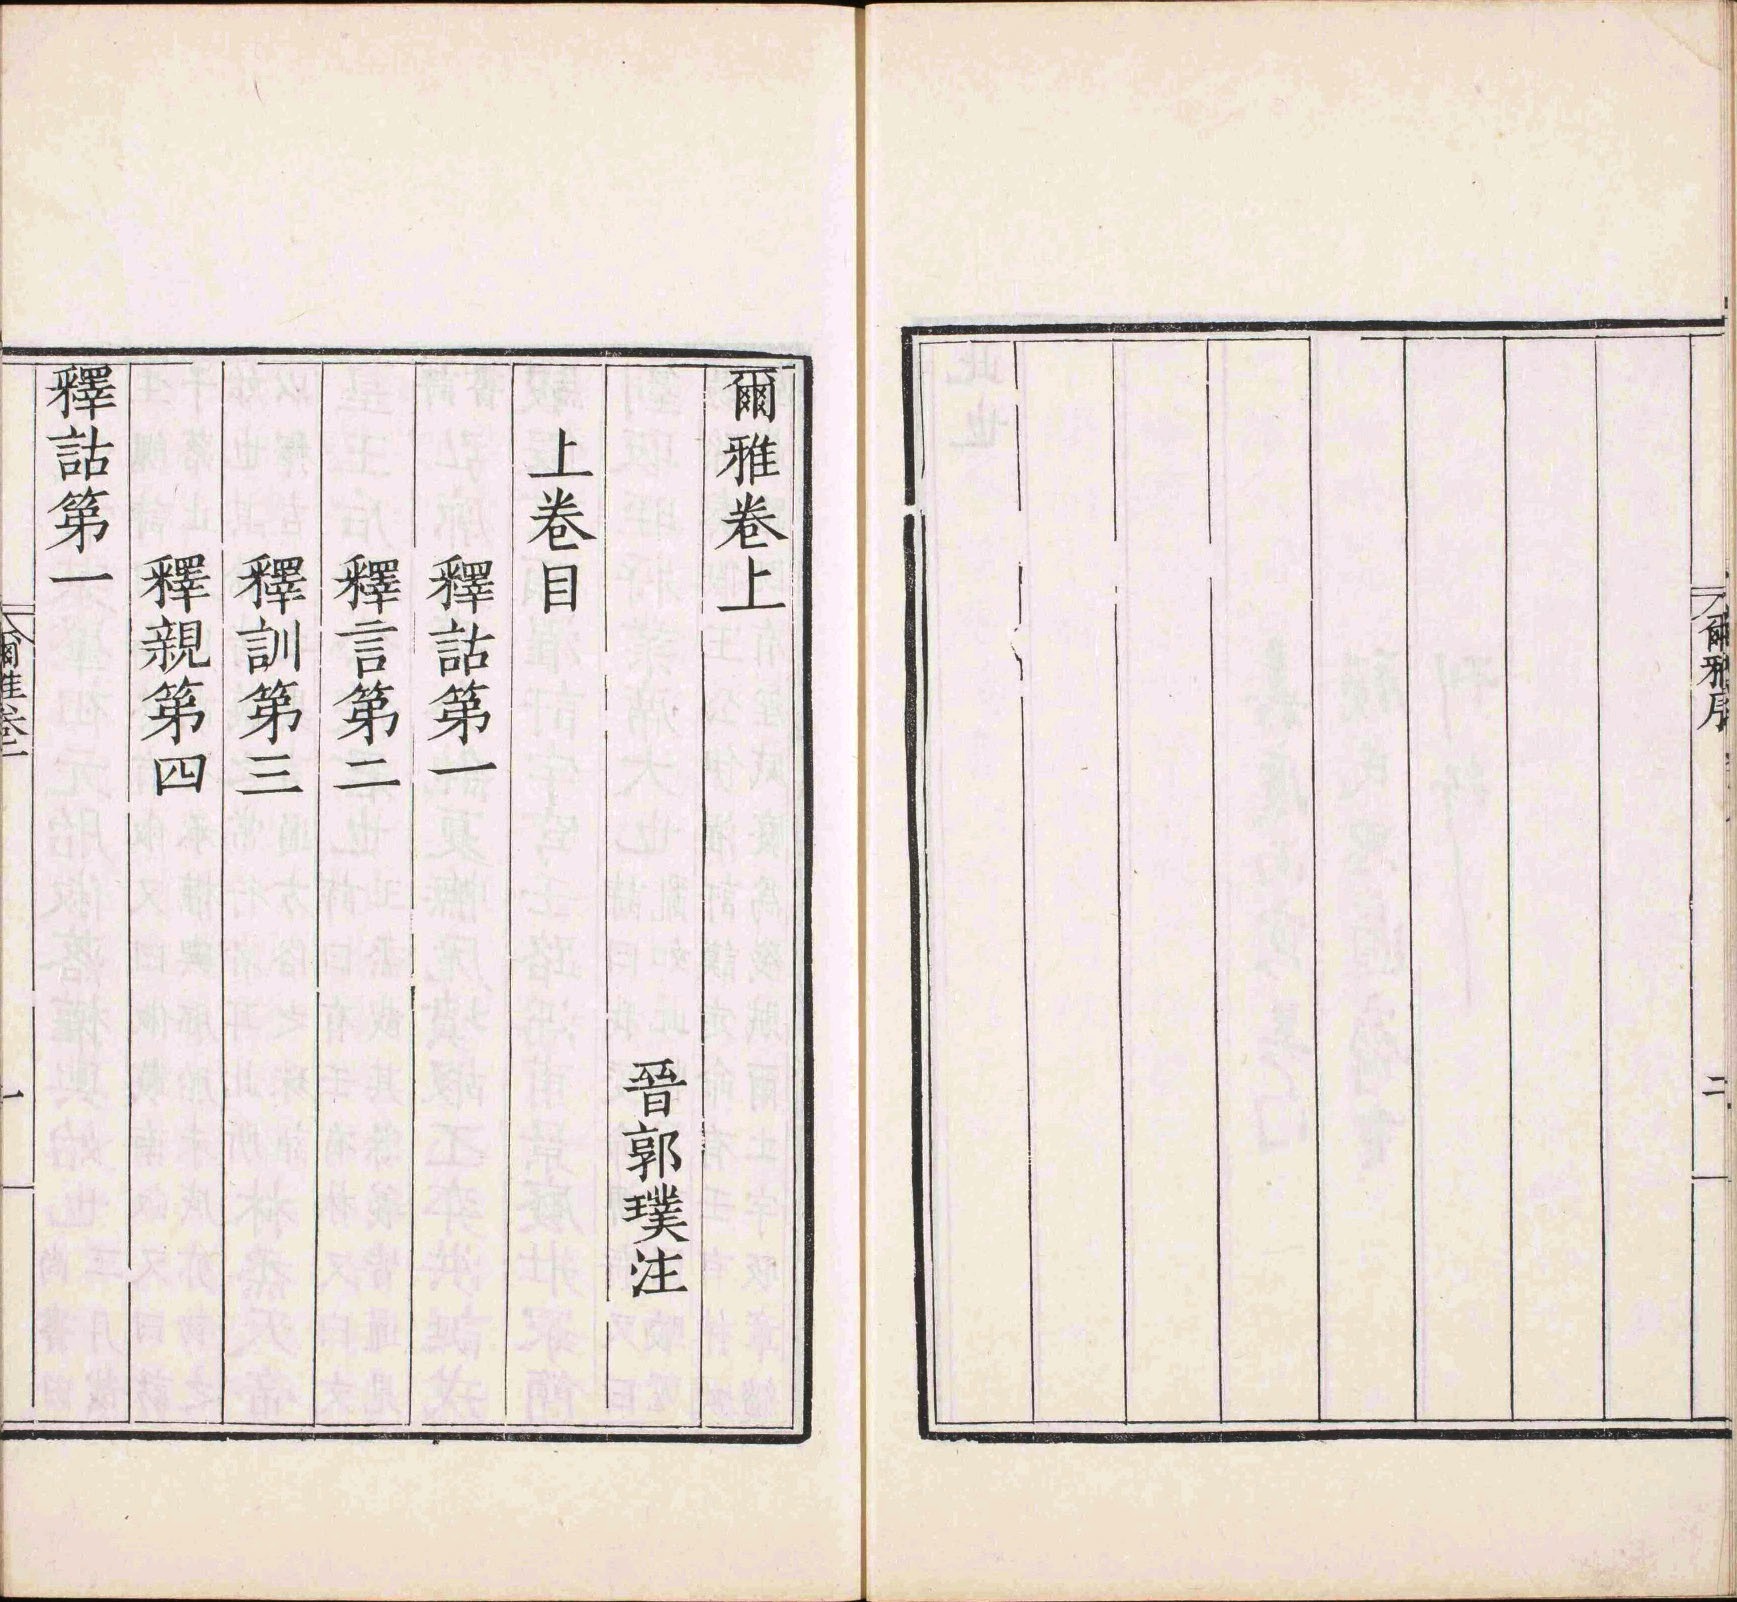 爾雅序
二
爾雅卷上
晉郭璞注
上卷目
釋詁第一
釋言第二
釋訓第三
釋親第四
釋詁第一
爾雅卷上
一